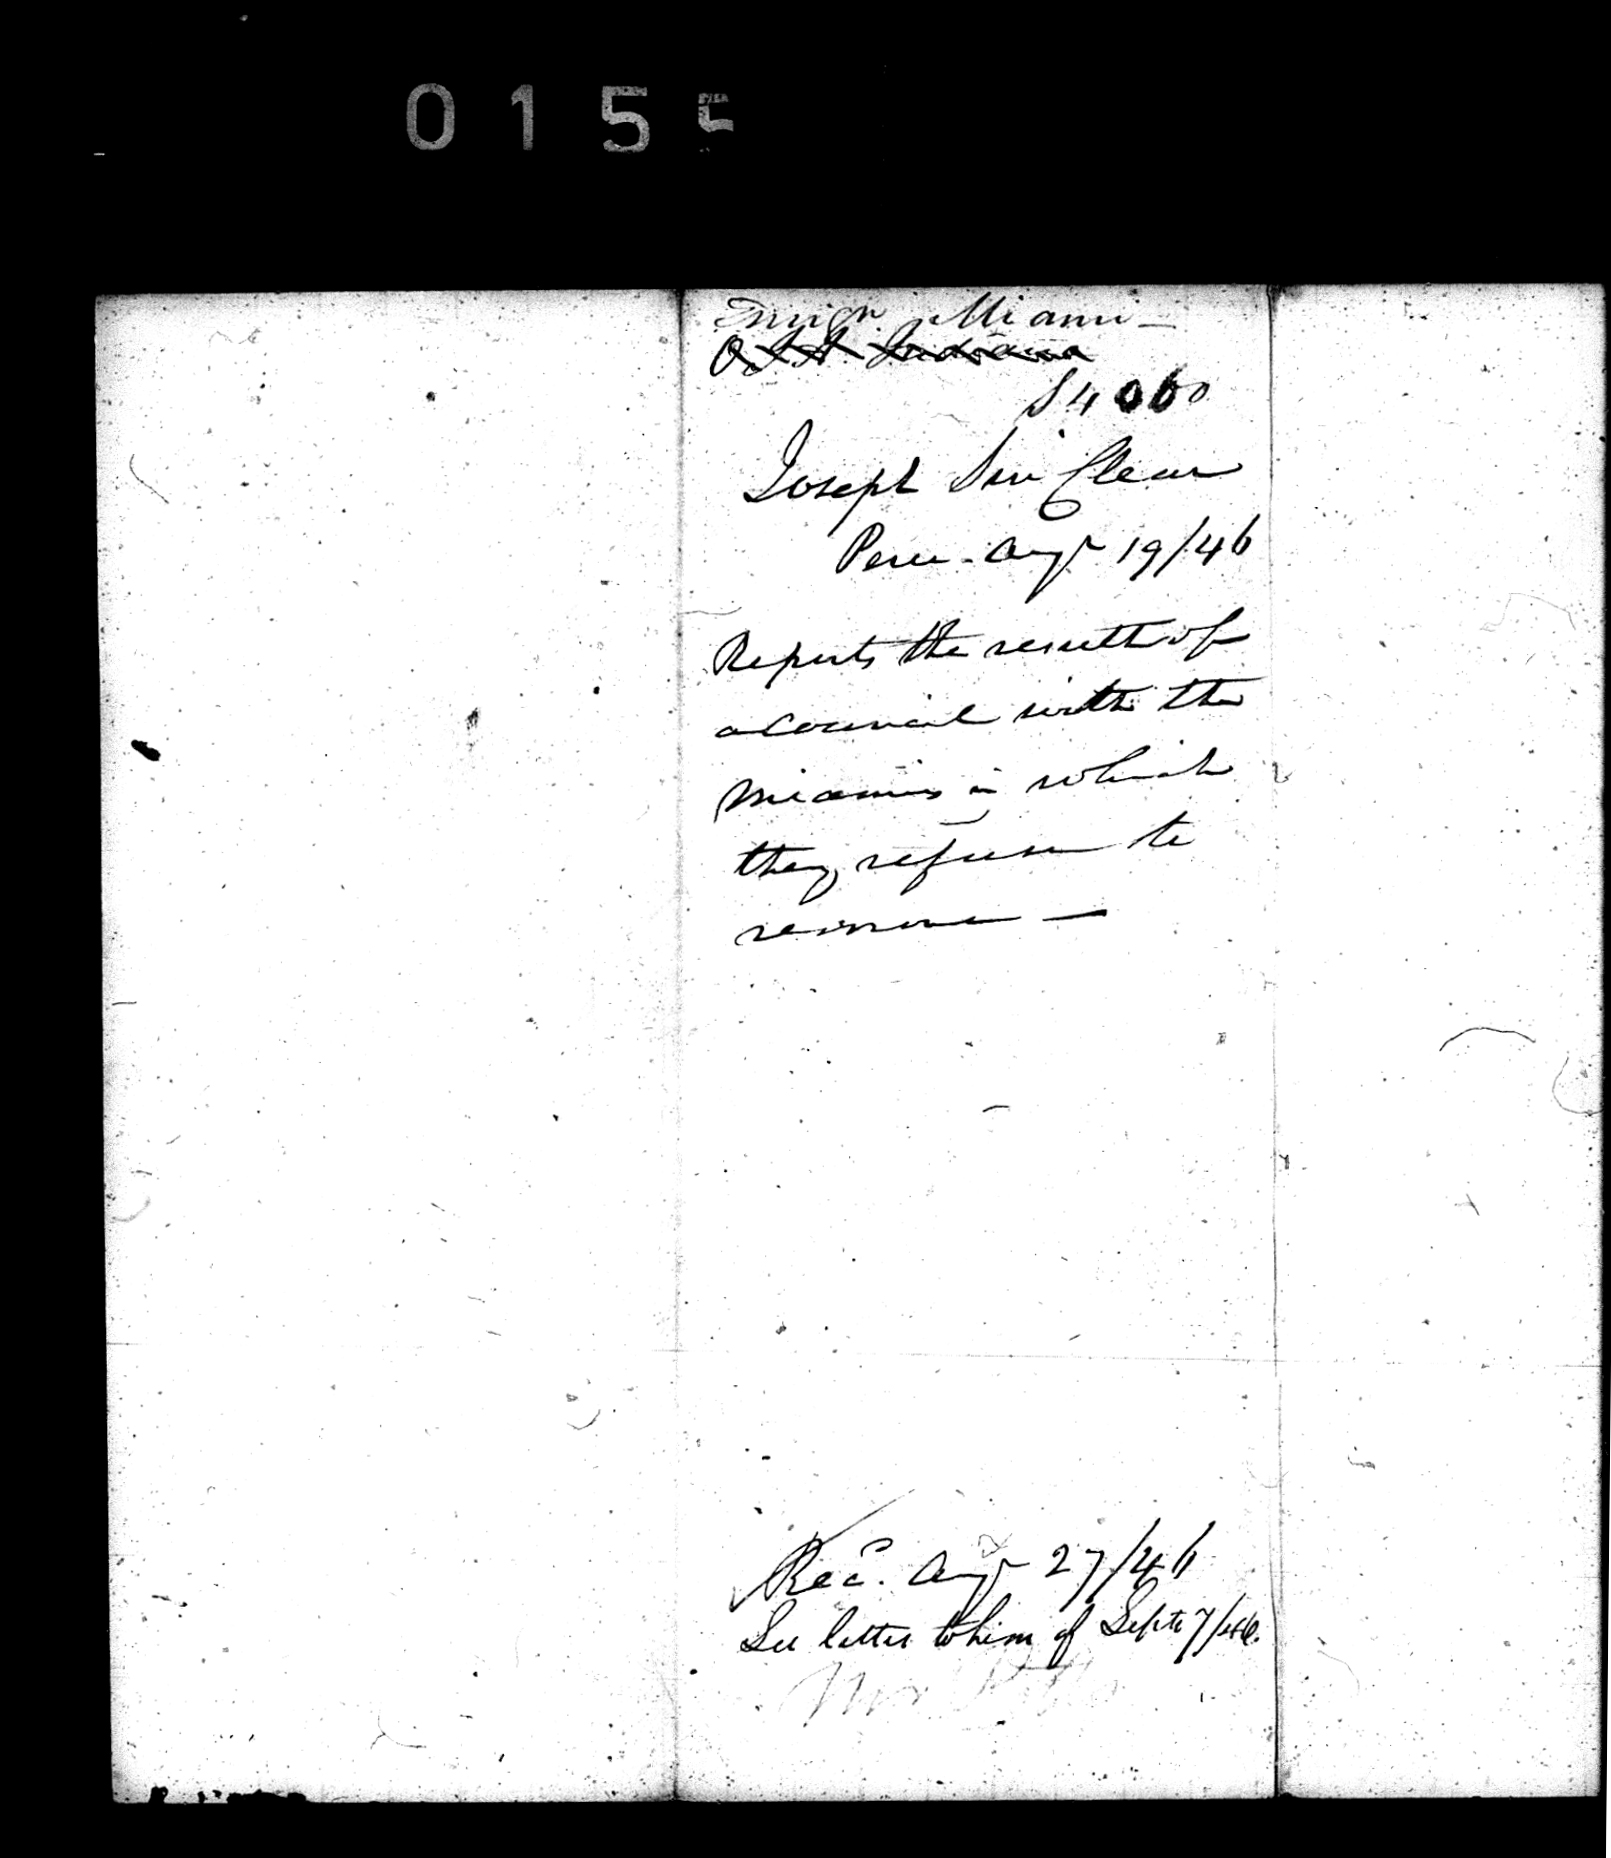 0155
Emign. Miami —
O.I.A. Indiana
S 4060
Joseph SinClear
Peru - Augt 19/46
Reports the result of
a council with the
Miamis in which
they refuse to
remove —
Recd. Augt 27/46
See letter to him of Septr 7/46.